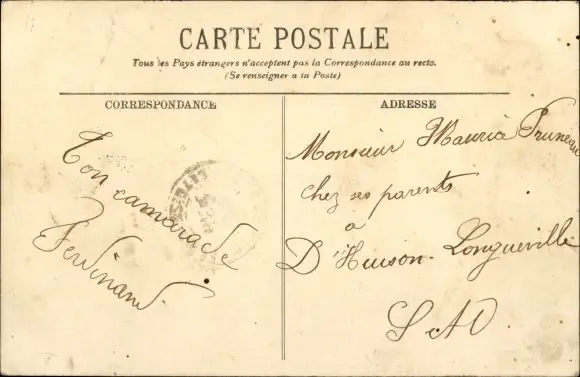 CARTE POSTALE
Tous les Pays étrangers n'acceptent pas la Correspondance au recto.
(Se renseigner a la Poste)
CORRESPONDANCE
Ton camarade
Ferdinand
ADRESSE
Monsieur Maurice Pruneau
chez ses parents
a
D'Huison-Longueville
S AO